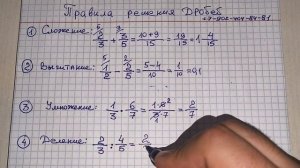 Правила решения Дробей
① Сложение: 2/3 + 3/5 = (10+9)/15 = 19/15 = 1 4/15
② Вычитание: 1/2 - 2/5 = (5-4)/10 = 1/10 = 0,1
③ Умножение: 1/3 · 6/7 = = 2/7
④ Деление: 2/3 : 4/5 = 2/